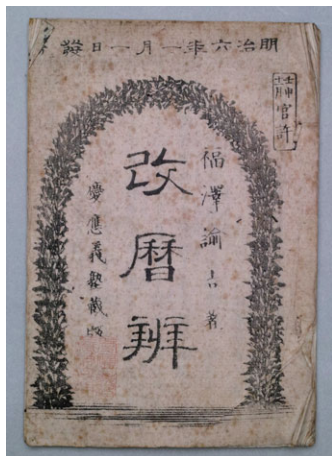 明治六年一月一日發
官許
福澤諭吉著
改暦辨
慶應義塾藏版